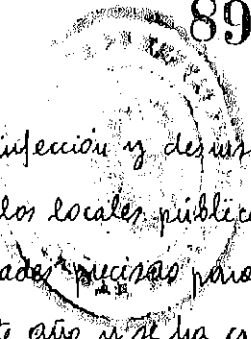 89
infección y desins
los locales públic
ades preciso para
te año y se ha co